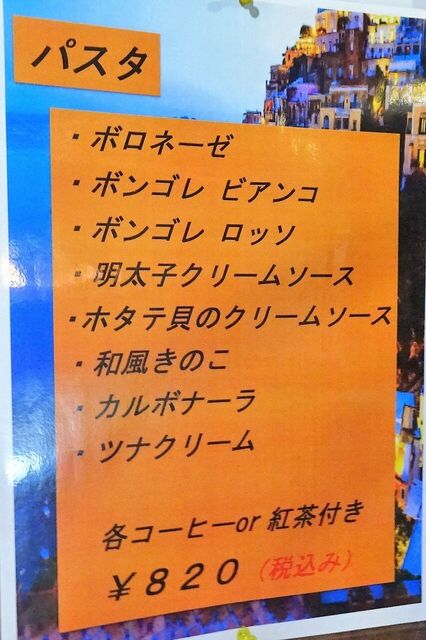 パスタ
・ボロネーゼ
・ボンゴレ ビアンコ
・ボンゴレ ロッソ
・明太子クリームソース
・ホタテ貝のクリームソース
・和風きのこ
・カルボナーラ
・ツナクリーム
各コーヒーor 紅茶付き
￥８２０（税込み）